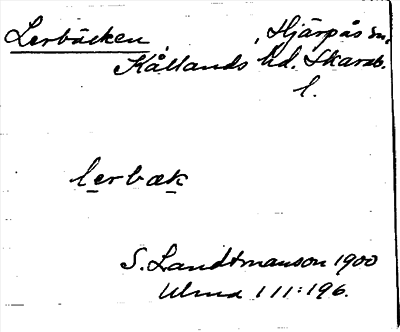 Lerbäcken, Hjärpås sn,
Kållands hd. Skarab.
l.
lerbæk
S. Landtmanson 1900
Ulma 111:196.